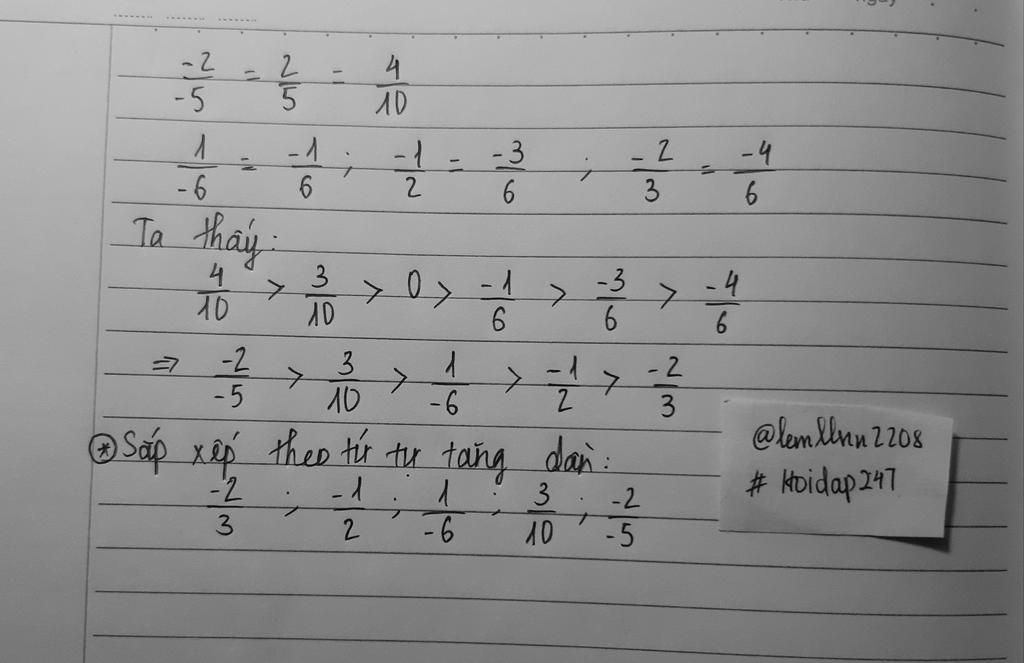 -2/-5 = 2/5 = 4/10
1/-6 = -1/6 ; -1/2 = -3/6 ; -2/3 = -4/6
Ta thấy:
4/10 > 3/10 > 0 > -1/6 > -3/6 > -4/6
=> -2/-5 > 3/10 > 1/-6 > -1/2 > -2/3
* Sắp xếp theo tứ tự tăng dần:
-2/3 ; -1/2 ; 1/-6 ; 3/10 ; -2/-5
@lemllnn2208
# Hoidap247